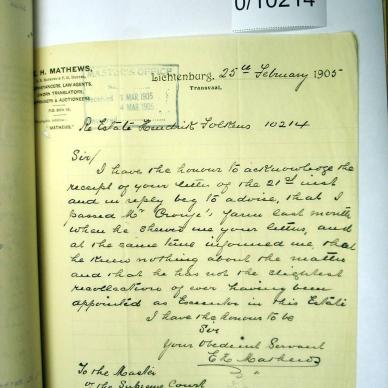 0/10214
E. H. MATHEWS,
CONVEYANCERS, LAW AGENTS,
SWORN TRANSLATORS,
APPRAISERS & AUCTIONEERS
"MATHEWS."
MASTER'S OFFICE
MAR 1905
4 MAR 1905
Lichtenburg, 25th February 1905
Transvaal,
Re Estate Hendrik Folkens 10214
Sir/
I have the honour to acknowledge the
receipt of your letter of the 21st inst
and in reply beg to advise, that I
passed Mr Cronje's farm last month
when he shewed me your letters, and
at the same time informed me, that
he knew nothing about the matter
and that he has not the slightest
recollection of ever having been
appointed as Executor in this Estate
I have the honour to be
Sir
Your Obedient Servant
E H Mathews
To the Master
of the Supreme Court